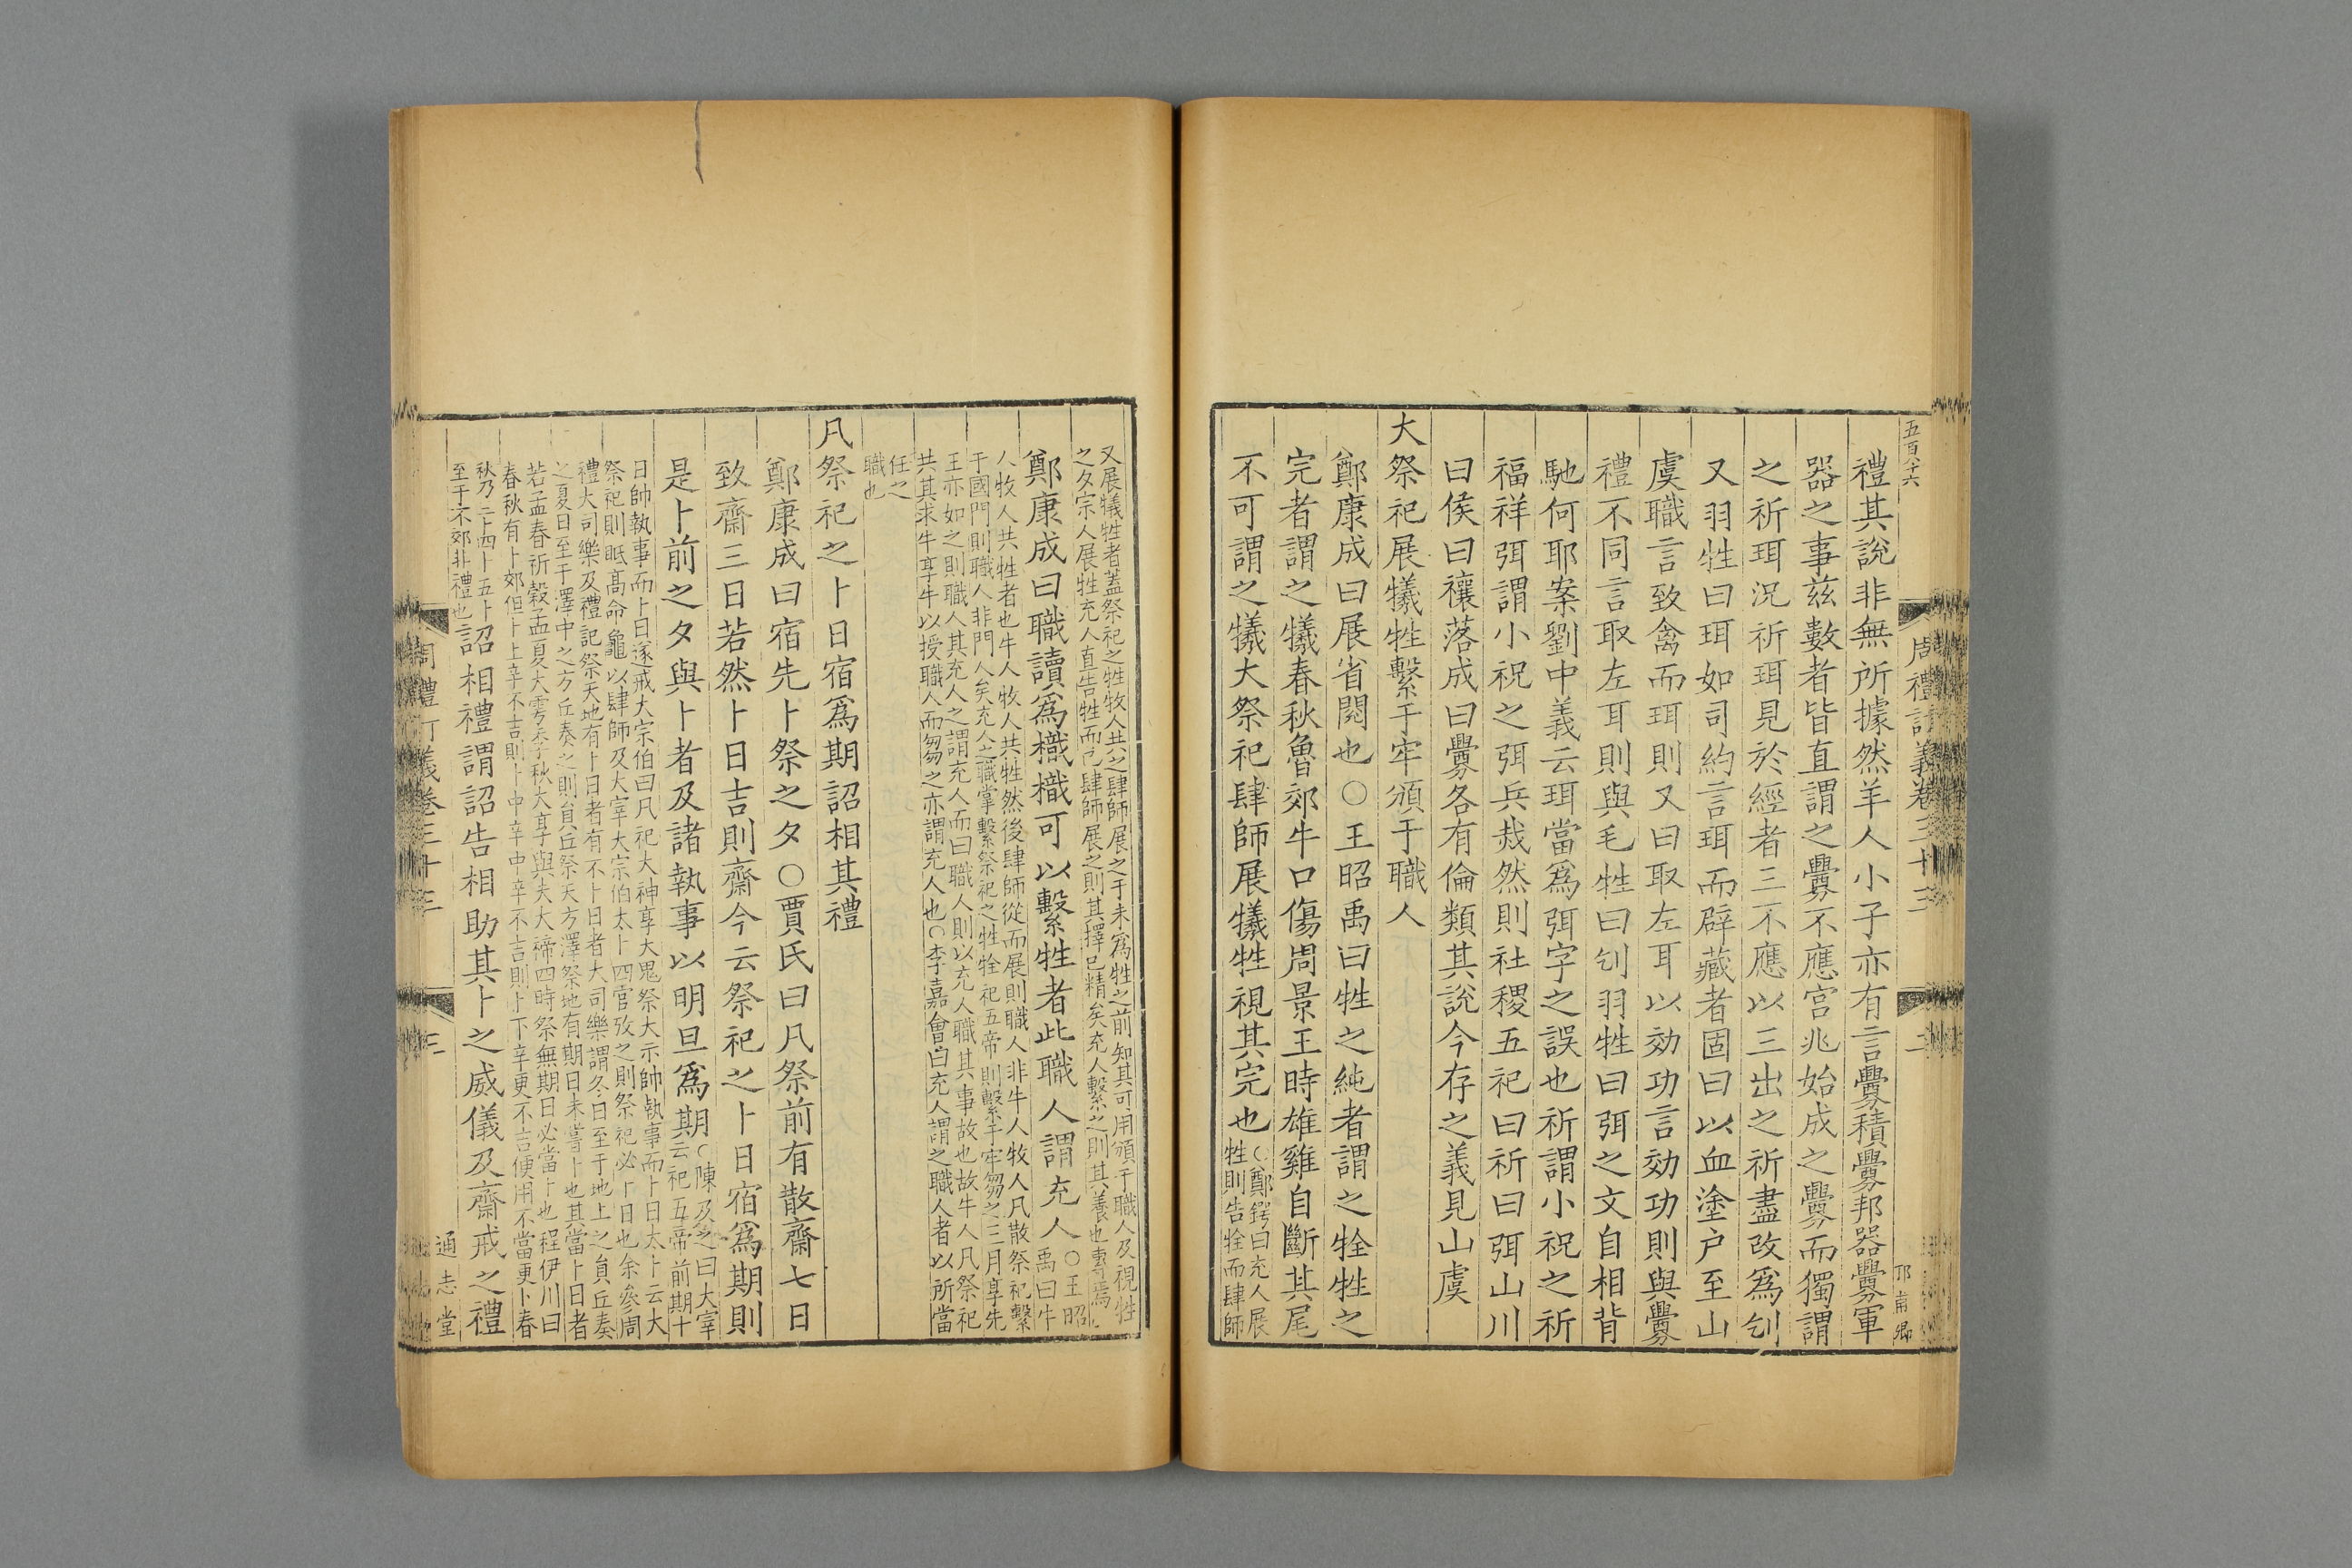 五百八十六
周禮訂義卷三十三
二
邛甫卿
禮其說非無所據然羊人小子亦有言釁積釁邦器釁軍
器之事玆數者皆直謂之釁不應宫兆始成之釁而獨謂
之祈珥況祈珥見於經者三不應以三出之祈盡改爲刉
又羽牲曰珥如司約言珥而辟藏者固曰以血塗户至山
虞職言致禽而珥則又曰取左耳以効功言効功則與釁
禮不同言取左耳則與毛牲曰刉羽牲曰弭之文自相背
馳何耶案劉中義云珥當爲弭字之誤也祈謂小祝之祈
福祥弭謂小祝之弭兵烖然則社稷五祀曰祈曰弭山川
曰侯曰禳落成曰釁各有倫類其說今存之義見山虞
大祭祀展犧牲繫于牢頒于職人
鄭康成曰展省閱也○王昭禹曰牲之純者謂之牷牲之
完者謂之犧春秋魯郊牛口傷周景王時雄雞自斷其尾
不可謂之犧大祭祀肆師展犧牲視其完也
○鄭鍔曰充人展
牲則告牷而肆師
又展犧牲者蓋祭祀之牲牧人共之肆師展之于未爲牲之前知其可用頒于職人及視牲
之夕宗人展牲充人直告牲而已肆師展之則其擇已精矣充人繫之則其養也專焉
鄭康成曰職讀爲樴樴可以繫牲者此職人謂充人
○王昭
禹曰牛
人牧人共牲者也牛人牧人共牲然後肆師從而展則職人非牛人牧人凡散祭祀繫
于國門則職人非門人矣充人之職掌繫祭祀之牲牷祀五帝則繫于牢芻之三月享先
王亦如之則職人其充人之謂充人而曰職人則以充人職其事故也故牛人凡祭祀
共其求牛享牛以授職人而芻之亦謂充人也○李嘉會曰充人謂之職人者以所當
任之
職也
凡祭祀之卜日宿爲期詔相其禮
鄭康成曰宿先卜祭之夕○賈氏曰凡祭前有散齋七日
致齋三日若然卜日吉則齋今云祭祀之卜日宿爲期則
是卜前之夕與卜者及諸執事以明旦爲期
○陳及之曰大宰
云祀五帝前期十
日帥執事而卜日遂戒大宗伯曰凡祀大神享大鬼祭大示帥執事而卜日太卜云大
祭祀則眡高命龜以肆師及大宰大宗伯太卜四官攷之則祭祀必卜日也余參周
禮大司樂及禮記祭天地有卜日者有不卜日者大司樂謂冬日至于地上之圜丘奏
之夏日至于澤中之方丘奏之則圜丘祭天方澤祭地有期日未嘗卜也其當卜日者
若孟春祈穀孟夏大雩季秋大享與夫大禘四時祭無期日必當卜也程伊川曰
春秋有卜郊但卜上辛不吉則卜中辛中辛不吉則卜下辛更不吉便用不當更卜春
秋乃二卜四卜五卜
至于不郊非禮也
詔相禮謂詔告相助其卜之威儀及齋戒之禮
周禮訂義卷三十三
三
通志堂